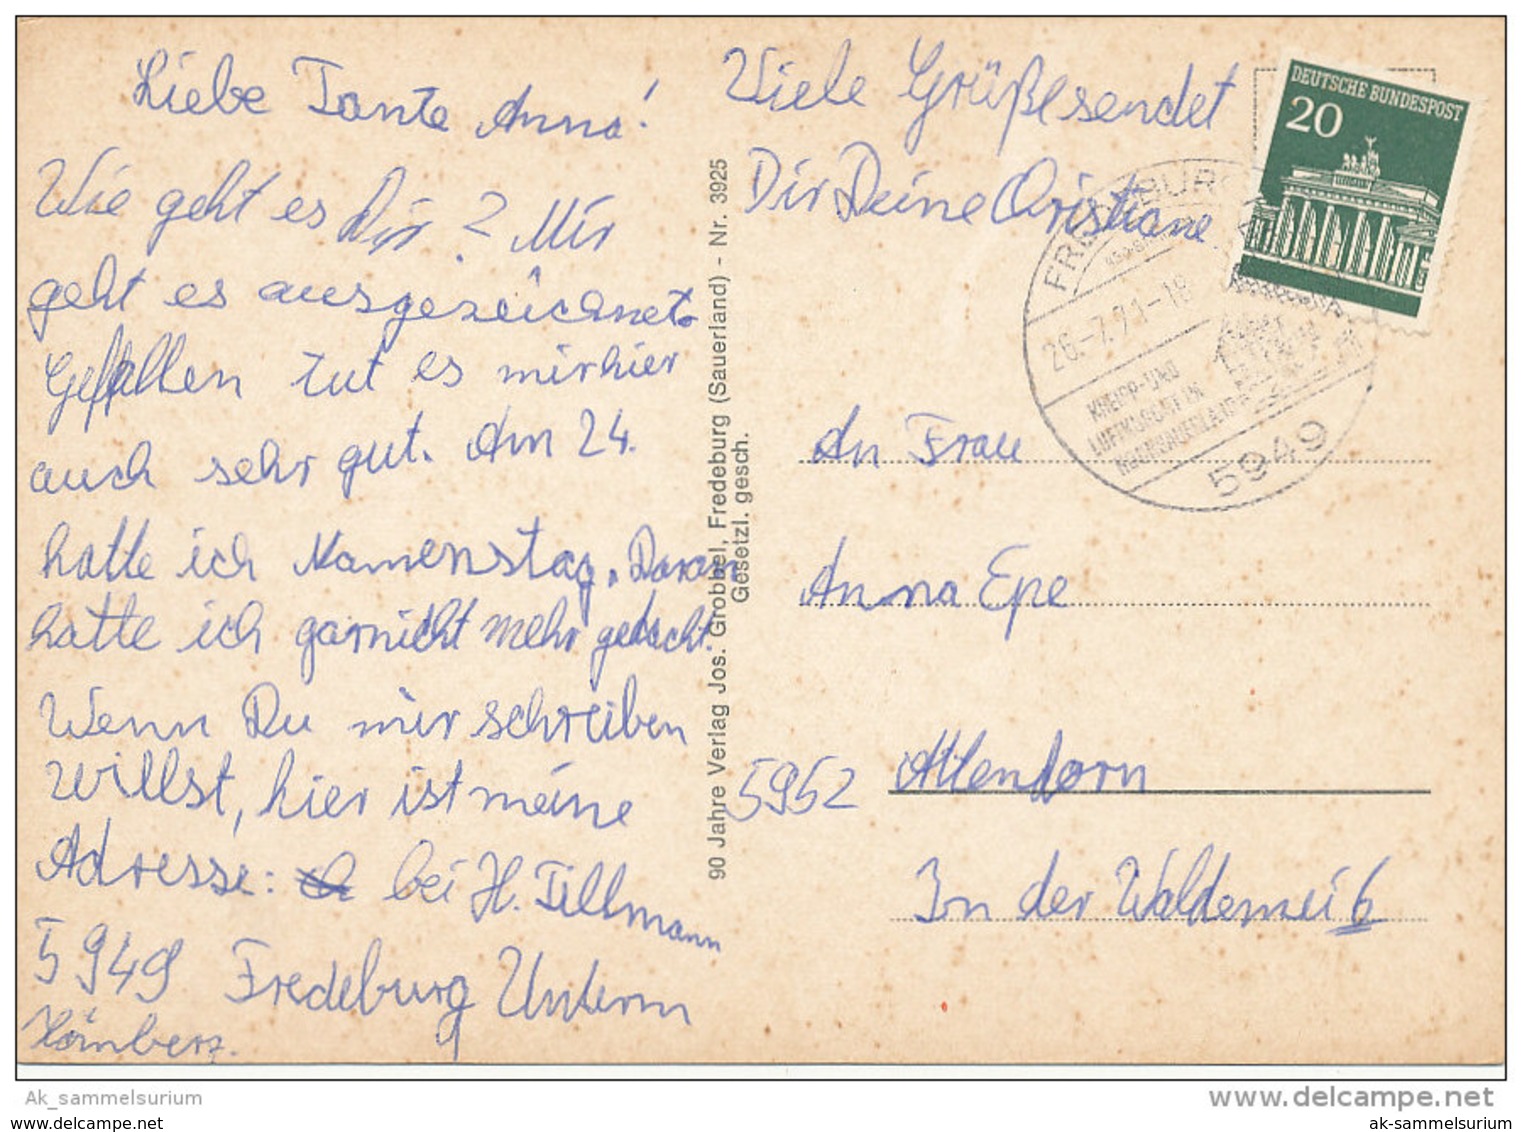 Liebe Tante Anna!
Wie geht es Dir? Mir
geht es ausgezeichnet.
Gefallen tut es mir hier
auch sehr gut. Am 24.
hatte ich Namenstag. Daran
hatte ich garnicht mehr gedacht.
Wenn Du mir schreiben
willst, hier ist meine
Adresse: bei H. Tillmann
5949 Fredeburg Unterm
Hömberg.
Viele Grüße sendet
Dir Deine Christiane.
90 Jahre Verlag Jos. Grobbel, Fredeburg (Sauerland) - Nr. 3925
Gesetzl. gesch.
DEUTSCHE BUNDESPOST
20
FREDEBURG
26.-7.71-18
KNEIPP- UND
LUFTKURORT IM
HOCHSAUERLAND
5949
An Frau
Anna Epe
5952 Attendorn
In der Waldemei 6
Ak_sammelsurium
www.delcampe.net
ak-sammelsurium
ak-sammelsurium